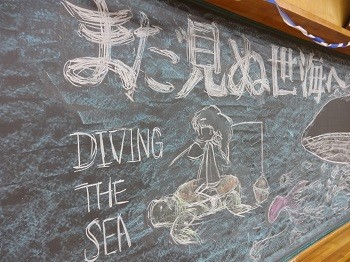 まだ見ぬ世海へ
DIVING
THE
SEA